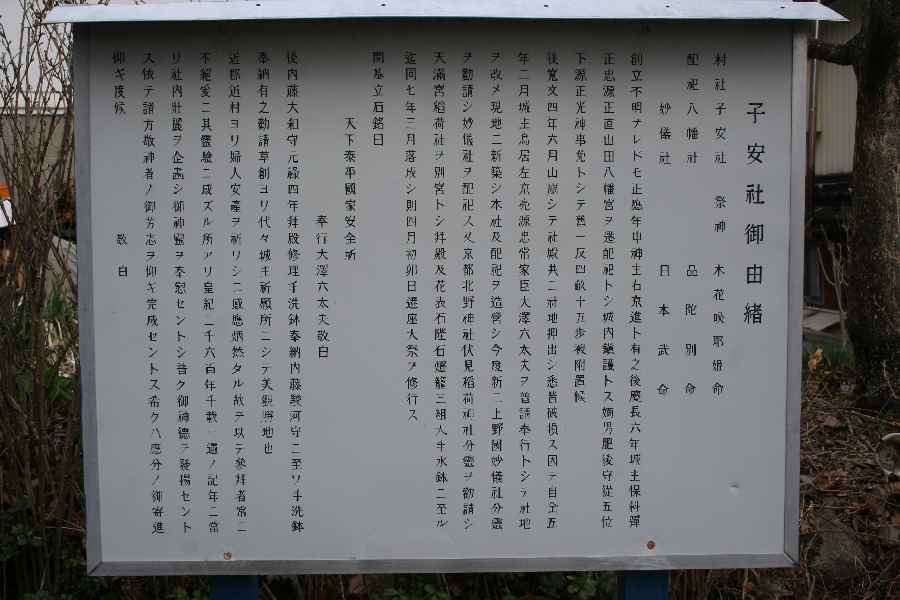 子安社御由緒
村社子安社 祭神 木花咲耶姫命
配祀八幡社 品陀別命
妙儀社 日本武命
創立不明ナレドモ正應年中神主右京進ト有之後慶長六年城主保科彈
正忠源正直山田八幡宮ヲ遷配祀トシ城内鎭護トス嫡男肥後守從五位
下源正光神事免トシテ舊一反四畝十五歩被附置候
後寛文四年六月山崩シテ社殿共ニ社地押出シ悉皆破損ス因テ自仝五
年二月城主鳥居左京亮源忠常家臣大澤六太夫ヲ普請奉行トシテ社地
ヲ改メ現地ニ新築シ本社及配祀ヲ造營シ今度新ニ上野國妙儀社分靈
ヲ勸請シ妙儀社ヲ配祀ス又京都北野神社伏見稻荷神社分靈ヲ勸請シ
天滿宮稻荷社ヲ別宮トシ拜殿及花表石陛石燈籠三組大キ水鉢ニ至ル
迄同七年三月落成シ則四月初卯日遷座大祭ヲ修行ス
開基立石銘曰
天下泰平國家安全所
奉行大澤六太夫敬白
後内藤大和守元祿四年拜殿修理手洗鉢奉納内藤駿河守ニ至リ手洗鉢
奉納有之勸請草創ヨリ代々城主祈願所ニシテ美觀勝地也
近郡近村ヨリ婦人安産ヲ祈リシニ感應炳然タル故ヲ以テ參拜者常ニ
不絶愛ニ其靈驗ニ感ズル所アリ皇紀二千六百年千載一遇ノ記年ニ當
リ社内壯麗ヲ企畫シ御神靈ヲ奉慰セントシ普ク御神德ヲ發揚セント
ス依テ諸方敬神者ノ御芳志ヲ仰ギ完成セントス希クハ應分ノ御寄進
仰ギ度候 敬白